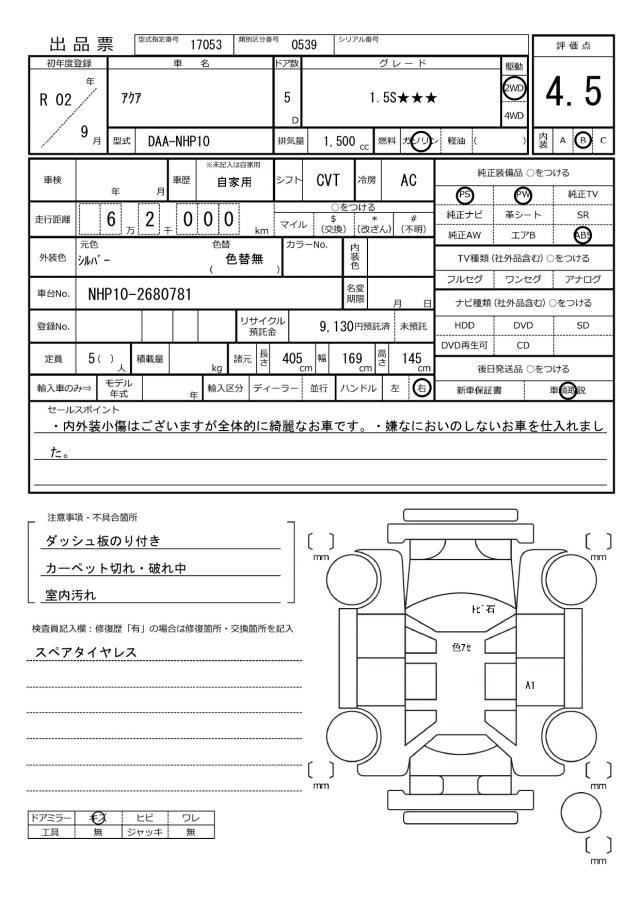 出品票 型式指定番号 17053 類別区分番号 0539 シリアル番号
評価点
4.5
内装 A B C
初年度登録 車名 ドア数 グレード 駆動
R 02 年 9 月 アクア 5 D 1.5S★★★ 2WD 4WD
型式 DAA-NHP10 排気量 1,500 cc 燃料 ガソリン 軽油 ( )
車検 年 月 車歴 ※未記入は自家用 自家用 シフト CVT 冷房 AC
走行距離 6 万 2 千 0 0 0 km ○をつける
マイル $ (交換) * (改ざん) # (不明)
外装色 元色 シルバー 色替 色替無 ( ) カラーNo. 内装色
車台No. NHP10-2680781 名変期限 月 日
登録No. リサイクル預託金 9,130円預託済 未預託
定員 5( ) 人 積載量 kg 諸元 長さ 405 cm 幅 169 cm 高さ 145 cm
輸入車のみ⇒ モデル年式 年 輸入区分 ディーラー 並行 ハンドル 左 右
純正装備品 ○をつける
PS PW 純正TV
純正ナビ 革シート SR
純正AW エアB ABS
TV種類(社外品含む) ○をつける
フルセグ ワンセグ アナログ
ナビ種類(社外品含む) ○をつける
HDD DVD SD
DVD再生可 CD
後日発送品 ○をつける
新車保証書 車輌取説
セールスポイント
・内外装小傷はございますが全体的に綺麗なお車です。・嫌なにおいのしないお車を仕入れまし
た。
注意事項・不具合箇所
ダッシュ板のり付き
カーペット切れ・破れ中
室内汚れ
検査員記入欄:修復歴「有」の場合は修復箇所・交換箇所を記入
スペアタイヤレス
ドアミラー キズ ヒビ ワレ
工具 無 ジャッキ 無
mm
mm
トビ石
色アセ
A1
mm
mm
mm